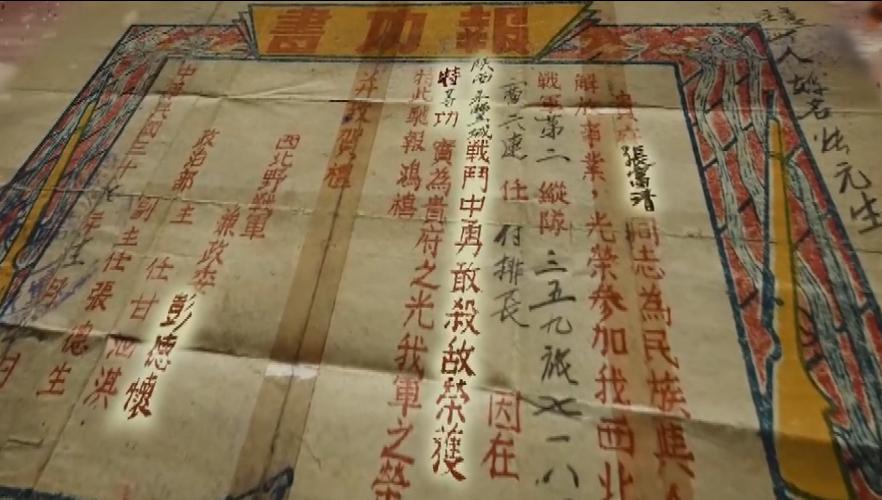 報功書
人姓名
貴府張富清同志為民族與人
解放事業，光榮參加我西北
戰軍第二縱隊三五九旅一八
六連任付排長因在
陝西永豐城戰鬥中勇敢殺敵榮獲
特等功實為貴府之光我軍之榮
特此馳報鴻禧
并致賀禮
西北野戰軍
兼政委彭德懷
政治部主任甘泗淇
副主任張德生
中華民國三十七年月